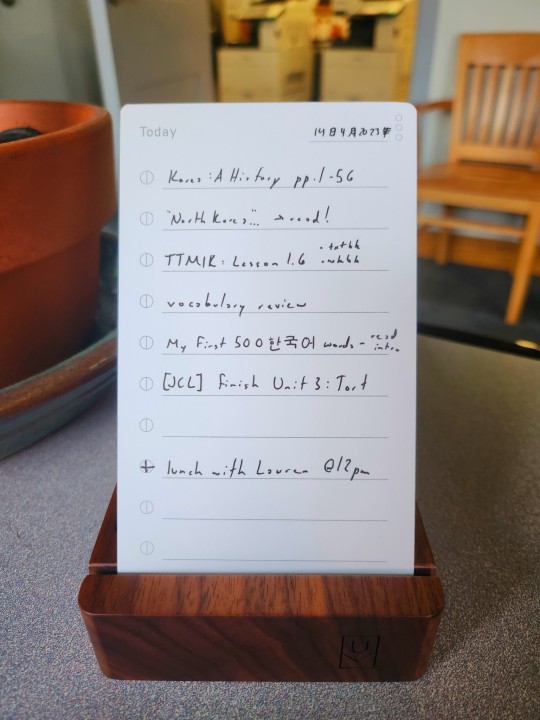 Today
14日4月2023年
Korea: A History pp. 1-56
"North Korea"... → read!
TTMIK: Lesson 1.6 • txtbk
• wkbk
vocabulary review
My First 500 한국어 words - read
intro
[JCL] finish Unit 3: Tort
lunch with Lauren @12pm